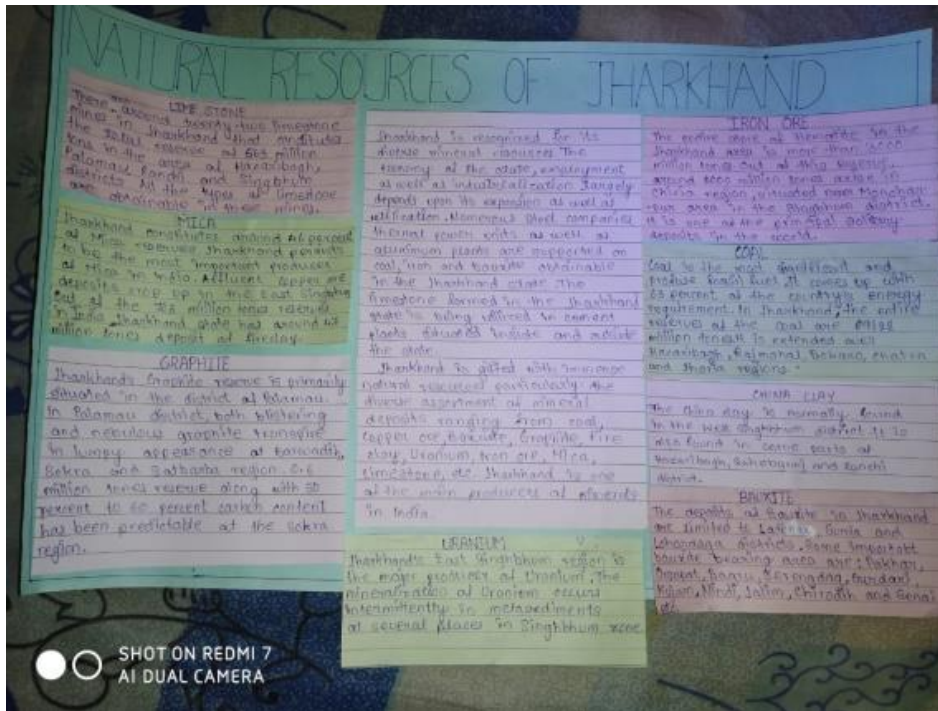 NATURAL RESOURCES OF JHARKHAND
LIME STONE
There are around twenty-two limestone
mines in Jharkhand that
the total reserve of 563 million
tons in the area of Hazaribagh,
Palamau Ranchi and Singhbhum
districts All the types of limestone
are obtainable at these mines.
MICA
Jharkhand constitutes around 46 percent
of Mica reserves Jharkhand
to be the most important producer
of Mica in India. Affluent copper ore
deposits up in the East Singhbhum
Out of the million tones reserves
in India, Jharkhand state has around
million tones deposit of
GRAPHITE
Jharkhand's Graphite reserve is primarily
situated in the district of Palamau.
In Palamau district, both blistering
and nebulous graphite transpire
in lumpy appearance at
Sokra and Satbarba region.
million tones reserve along with 50
percent to 60 percent carbon content
has been predictable at the Sokra
region.
Jharkhand is recognized for its
diverse mineral resources The
economy of the state, employment
as well as largely
depends upon its expansion as well as
utilification. Numerous steel companies
thermal power units as well as
aluminum plants are supported on
coal, iron and bauxite obtainable
in the Jharkhand state The
limestone formed in the Jharkhand
state is being utilized in cement
plants situated inside and outside
the state.
Jharkhand is gifted with immense
natural resources particularly the
diverse assortment of mineral
deposits ranging from coal,
copper ore, Bauxite, Graphite, Fire
clay, Uranium, Iron ore, Mica,
Limestone, etc. Jharkhand is one
of the main producers of minerals
in India.
URANIUM
Jharkhand's East Singhbhum region is
the major producer of Uranium. The
mineralization of Uranium occurs
intermittently in metasediments
at several places in Singhbhum zone
IRON ORE
The entire store of Hematite in the
Jharkhand area is more than
million tones Out of this
around million tones exists in
china region, situated near
area in the Singhbhum district.
It is one of the principal solitary
deposits in the world.
COAL
Coal is the most significant and
profuse fossil fuel. It comes up with
63 percent of the country's energy
requirement. In Jharkhand, the entire
reserves of the coal are
million toneslt is extended over
Hazaribagh, Rajmahal, Bokaro, Chatra
and Jharia regions.
CHINA CLAY
The china clay is normally found
in the West Singhbhum district. It is
also found in some parts of
Hazaribagh, Sahebganj and Ranchi
district.
BAUXITE
The deposits of Bauxite in Jharkhand
are limited to Latehar, Gumla and
Lohardaga districts. Some important
bauxite bearing area are : Pakhar,
Bagru, Serengdag, Gurdari,
Jalim, Chirodih and
etc.
SHOT ON REDMI 7
AI DUAL CAMERA